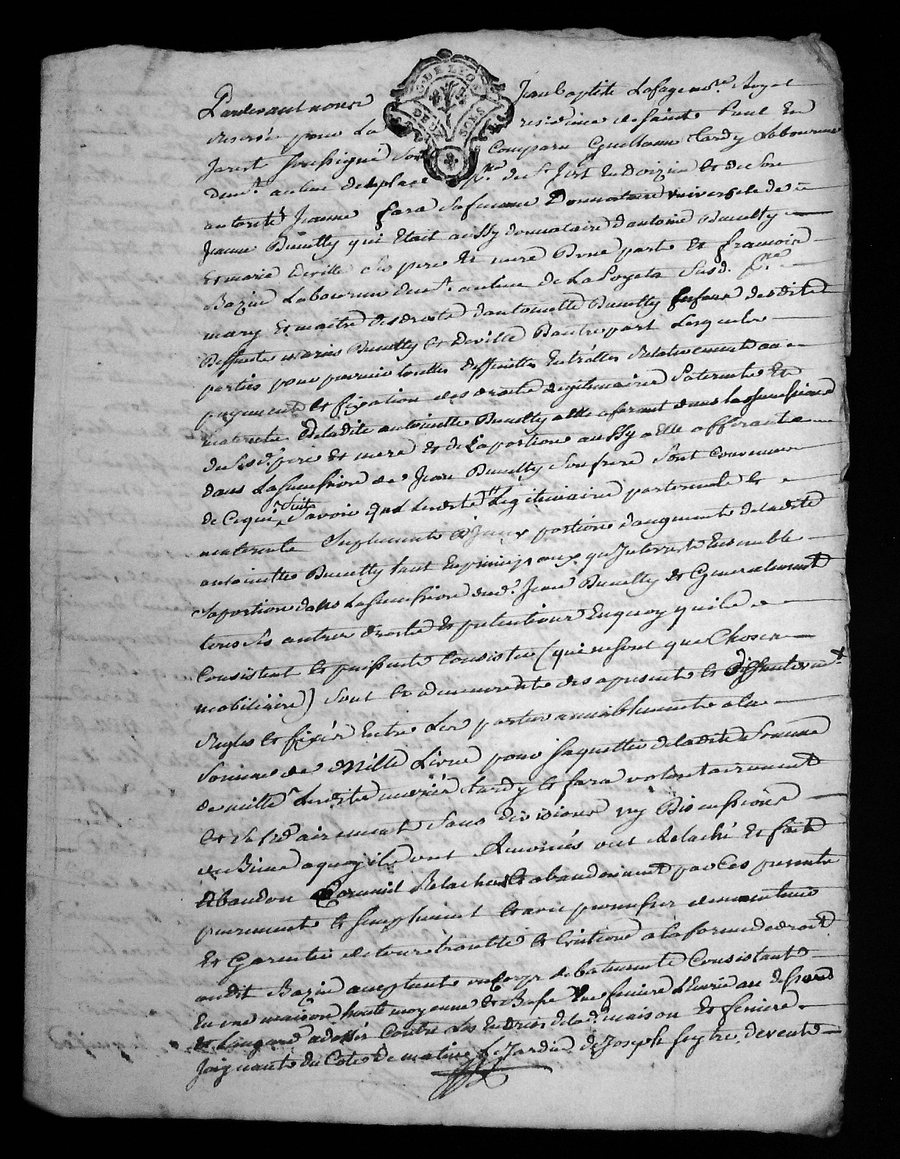 Pardevant nous Jean Baptiste Lafarge no.re Royal
reservé pour la residence de Saint Paul En
Jarest soussigné Comparu Guillaume Tardy Laboureur
dem.t au lieu de la place p.sse de S.t Just En Doizieu Et de Son
autorité Jeanne fara Sa femme Donnataire universelle de
Jeanne Buully qui Etait aussy donnataire d'antoine Buully
Et marie Deville Ses pere Et mere D'une part Et francois
Bazin Laboureur dem.t au lieu de susd. p.sse
mary Et maitre des droits d'antoinette Buully fille des dits
Deffunts Buully Et Deville D'autre part Lesquels
parties pour prevenir toutes difficultés Entr'elles Relativement au
payement Et fixation des droits legitimaires paternels Et
maternels De ladite antoinette Buully a elle aferant dans la succession
de sesd. pere Et mere Et de La portion aussy a elle afferante
dans La succession de Jean Buully Son frere Sont convenus
de Cequi Suit Savoir que Les droits Legitimaires paternels Et
maternels Suplement portion d'augment de ladite
antoinette Buully tant En principaux qu'Interests Ensemble
Sa portion dans La succession dud. Jean Buully Et Generalement
tous Ses autres droits Et pretentions En quoy qu'ils
Consistent Et puissent Consister (qui ne sont que Choses
mobiliaires) Sont Et demeurent des apresent Et
Reglés Et fixés Entre Les parties amiablement a la
Somme de Mille Livres pour s'aquitter de ladite Somme
de mille Livres Les dits mariés Tardy Et fara volontairement
Et solidairement Sans division ny Discussion
de Biens a quoy ils ont Renoncés ont Relaché Et fait
abandon Comme ils Relachent Et abandonnent par Ces presentes
purement Et simplement Et avec promesse de maintenue
Et Garentie de tous troubles Et Evictions a la forme de droit
audit Bazin acceptant un Corps de batiments Consistant
En une maison haute moyenne Et Basse Une feniere Ecurie au dessous
Et Langard adossés Contre Les Endroits de lad. maison Et feniere
Joignants du Coté de matin Le Jardin de Joseph de vent
G.DE LYON
DEUX SOLS